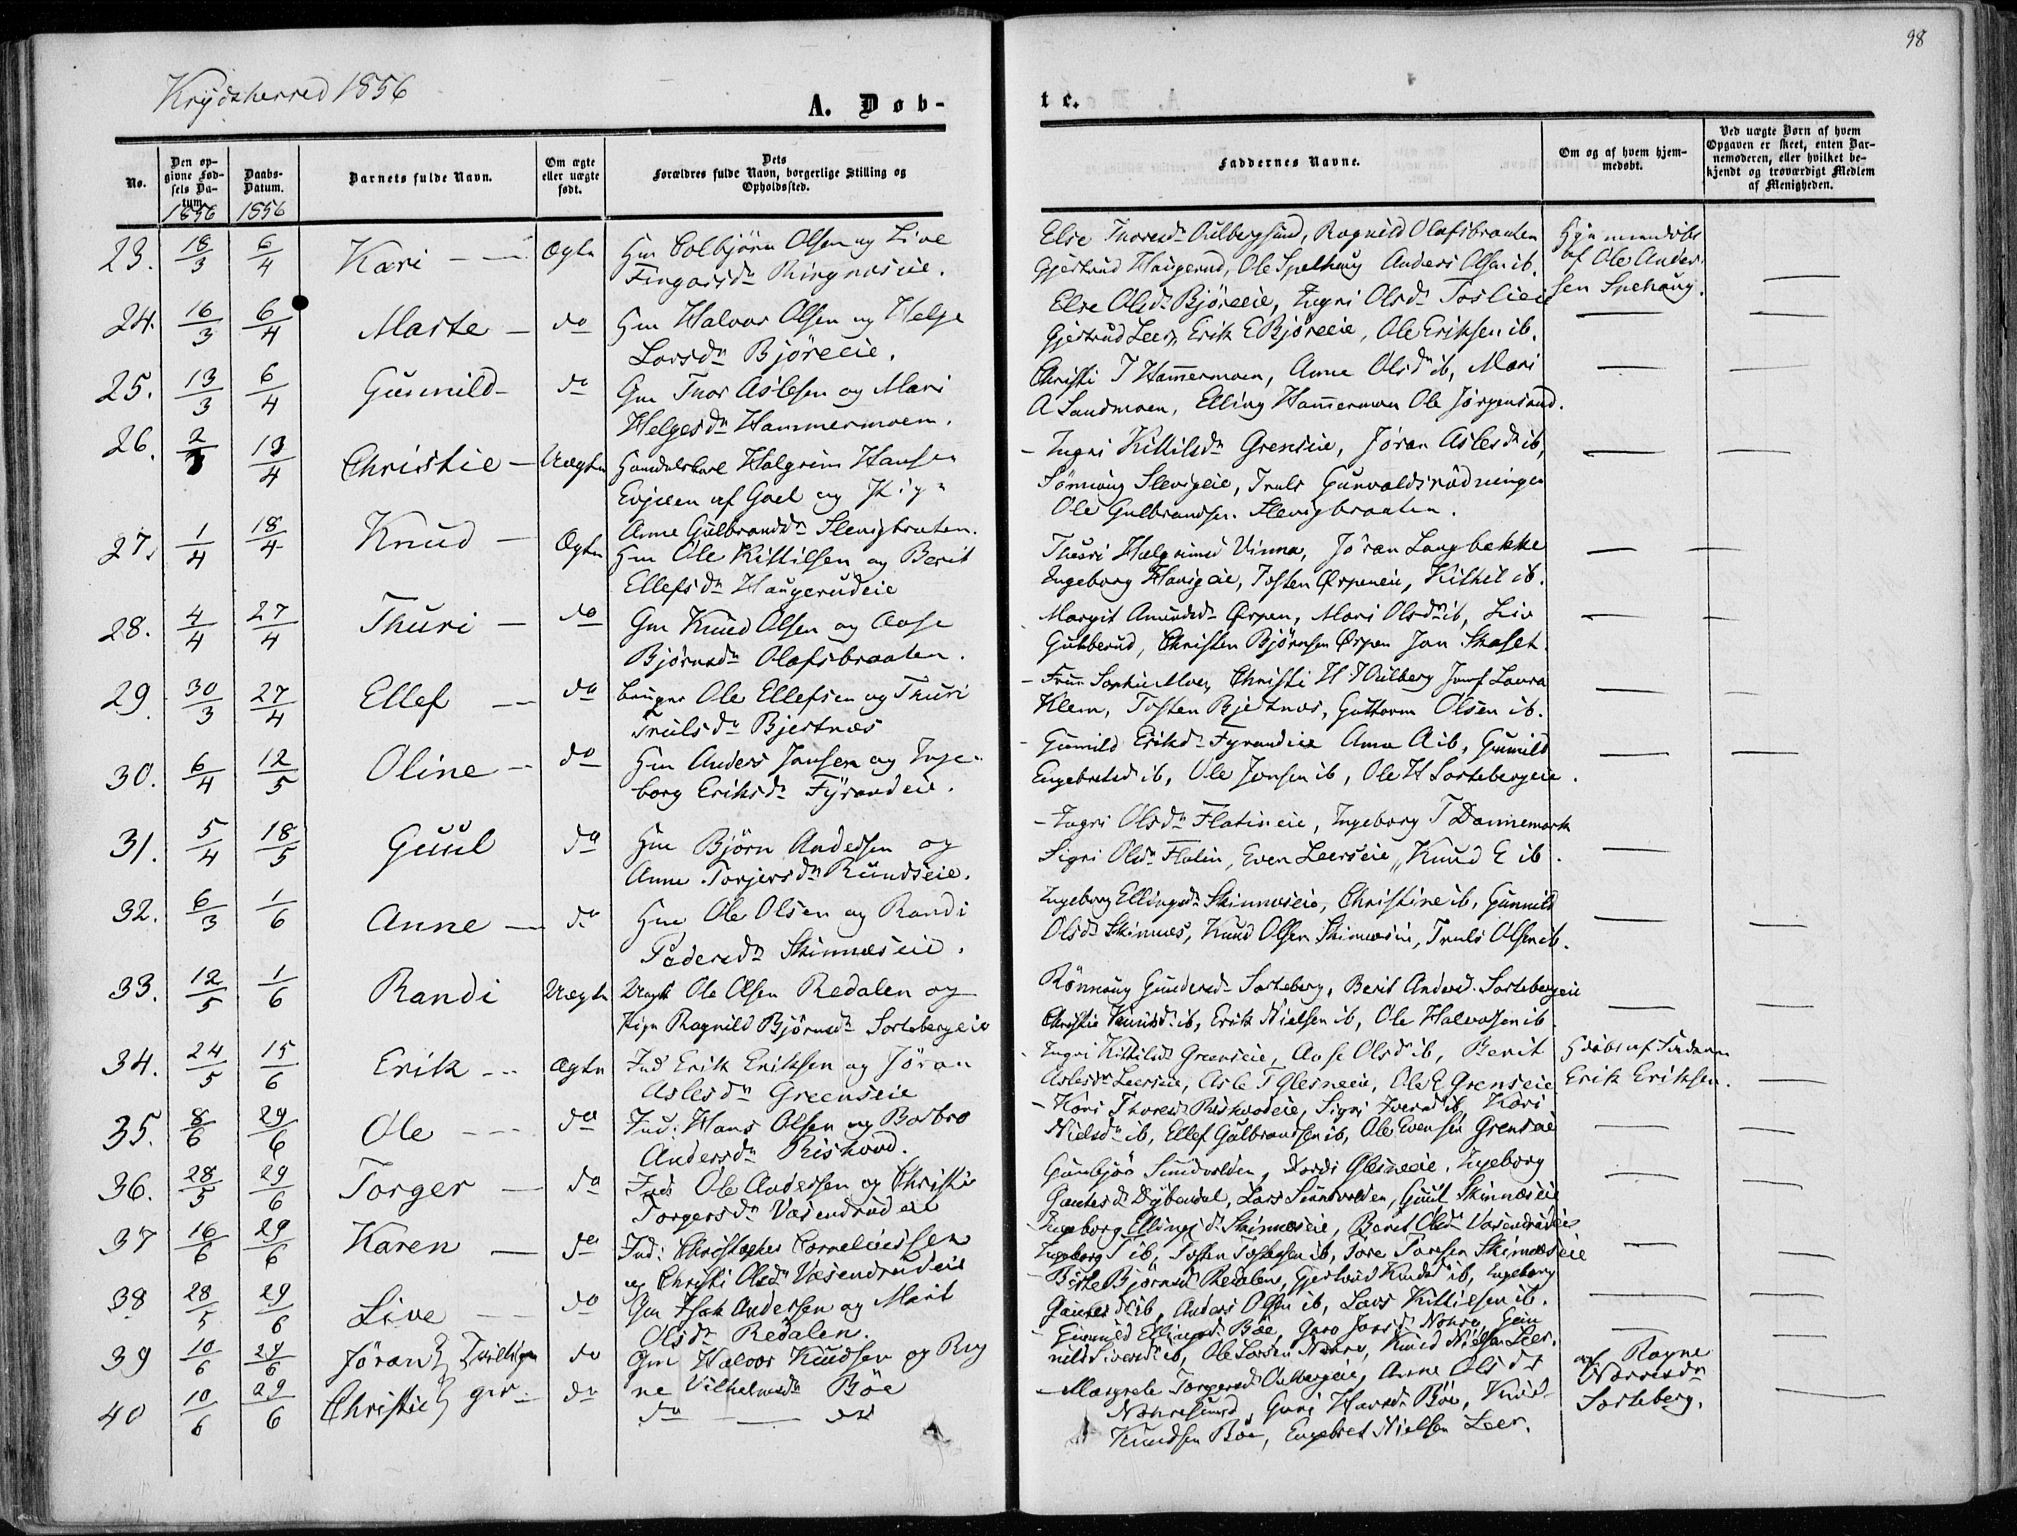 Krydsherred 1856
98
A. Døb-
te.
No.
Den op-
givne Fød-
sels Da-
tum.
1856
Daabs-
Datum.
1856
Barnets fulde Navn.
Om ægte
eller uægte
født.
Dets
Forældres fulde Navn, borgerlige Stilling og
Opholdssted.
Faddernes Navne.
Om og af hvem hjem-
medøbt.
Ved uægte Børn af hvem
Opgaven er skeet, enten Bar-
nemoderen, eller hvilket be-
kjendt og troværdigt Medlem
af Menigheden.
23. 18/3 6/4 Kari Ægte Hm Colbjörn Olsen og Live
Fingarsdr Ringnæseie.
Else Thoresdr Ragnild Olafsbraaten
Gjertrud Haugerud, Ole Spelhaug Anders Olsen ib.
af Ole Ander-
sen Spehaug.
24. 16/3 6/4 Marte do Hm Halvor Olsen og Helge
Larsdr Björeeie.
Else Olsdr Björeeie, Ingri Olsdr
Gjertrud Leer, Erik E Björeeie, Ole Eriksen ib.
25. 13/3 6/4 Gunnild do Gm Thor Aslesen og Mari
Helgesdr Hammermoen.
Christi T Hammermoen, Anne Olsdr ib, Mari
A Sandmoen, Elling Hammermoen Ole Jörgensrud.
26. 2/3 13/4 Christie Uægte Halgrim Hansen
af Goel og Pige
Anne Gulbrandsdr Slevigbraaten.
Ingri Kittilsdr Grenseie, Jöran Aslesdr ib,
Slevigeie, Truls
Ole Gulbrandsen Slevigbraaten.
27. 1/4 18/4 Knud Ægte Hm Ole Kittilsen og Berit
Ellefsdr Haugerudeie
Thuri Vinna, Jöran Langbekke
Ingeborg Tosten Ørpeneie, Kittil ib.
28. 4/4 27/4 Thuri do Gm Knud Olsen og Aase
Björnsdr Olafsbraaten.
Margit Amundsdr Ørpen, Mari Olsdr ib, Liv
Gubberud, Christen Björnsen Ørpen Jan Skaset.
29 30/3 27/4 Ellef do Bruger Ole Ellefsen og Thuri
Trulsdr Bjertnæs
Fru Sophie Moe, Christi H Jomf Laura
Klem, Tosten Bjertnæs, Guttorm Olsen ib.
30. 6/4 12/5 Oline do Hm Anders Jonsen og Inge-
borg Eriksdr Fyrandeie.
Gunnild Eriksdr Fyrandeie Anne A ib, Gunnild
Engebretsd ib, Ole Jonsen ib, Ole H Sortebergeie.
31. 5/4 18/5 Guul do Hm Björn Andersen og
Anne Torjersdr Rundseie.
Ingri Olsdr Flatineie, Ingeborg T Dannemark
Sigri Olsdr Flatin, Even Leerseie, Knud E ib.
32. 6/3 1/6 Anne do Hm Ole Olsen og Randi
Pedersdr Skinnæseie.
Ingeborg Ellingsdr Skinnæseie, Christine ib, Gunnild
Olsdr Skinnæs, Knud Olsen Skinnæseie, Truls Olsen ib.
33. 12/5 1/6 Randi Uægte Ungk Ole Olsen Redalen og
Pige Ragnild Björnsdr Sortebergeie
Rönnaug Gundersdr Sorteberg, Berit Andersd Sortebergeie
Christie Knudsdr ib, Erik Nielsen ib, Ole Halvorsen ib
34. 24/5 15/6 Erik Ægte Ind Erik Eriksen og Jöran
Aslesdr Greenseie
Ingri Kittilsdr Greenseie, Aase Olsd ib, Berit
Aslesdr Leerseie, Asle T Glesneeie, Ole E Grenseie
Erik Eriksen.
35. 8/6 29/6 Ole do Ind. Hans Olsen og Barbro
Andersdr
Kari Thoresd Sigri ib, Kari
Nielsdr ib, Ellef Gulbrandsen ib, Ole Evensen Grenseie
36. 28/5 29/6 Torger do Ind: Ole Andersen og Christi
Torgersdr Væsendrudeie
Gunbjör Sundvolden, Dordi Glesneeie, Ingeborg
Gautesdr Dybendal, Lars Sundvolden, Guul Skinnæseie
37 16/6 29/6 Karen do Ind: Christopher Corneliussen
og Christi Olsdr Væsendrudeie
Ingeborg Ellingsdr Skinnæseie, Berit Olsdr Væsendrudeie
Ingeborg T ib, Tosten Tostensen ib, Tore Toresen Skinnæseie
38 28/5 29/6 Live do Gm Isak Andersen og Marit
Olsdr Redalen.
Birte Björnsd Redalen, Gjertrud Knudsd ib, Ingeborg
Gautesdr ib, Anders Olsen ib, Lars Kittilsen ib.
39 10/6 29/6 Jöran Tvillinger do Gm Halvor Knudsen og Rag
ne Vilhelmsdr Böe
Gunnild Ellingsdr Böe, Guro Jonsd Nohre, Gun
nild Siversdr ib, Ole Larsen Nohre, Knud Nielsen Leer.
af Ragne
Sorteberg.
40 10/6 29/6 Christie do do do
Margrete Torgersd Anne Olsdr
Nohresund, Guri Havordr Böe, Knud
Knudsen Böe, Engebret Nielsen Leer.